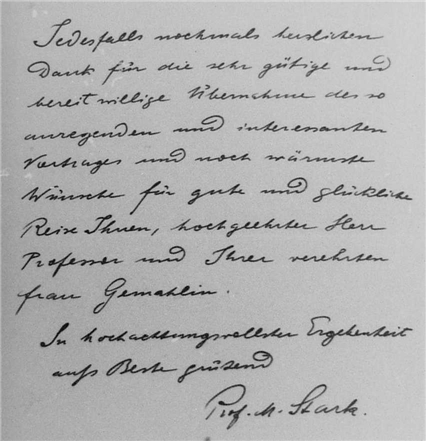 Jedesfalls nochmals herzlichen
Dank für die sehr gütige und
bereitwillige Übernahme des so
anregenden und interessanten
Vortrages und noch wärmste
Wünsche für gute und glückliche
Reise Ihnen, hochgeehrter Herr
Professor und Ihrer verehrten
Frau Gemahlin.
In hochachtungsvollster Ergebenheit
aufs Beste grüßend
Prof. M. Stark.